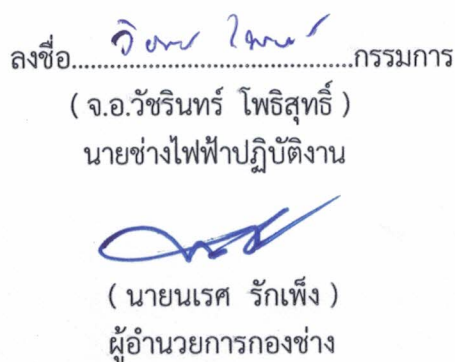 ลงชื่อ........................................กรรมการ
( จ.อ.วัชรินทร์ โพธิสุทธิ์ )
นายช่างไฟฟ้าปฏิบัติงาน
( นายนเรศ รักเพ็ง )
ผู้อำนวยการกองช่าง